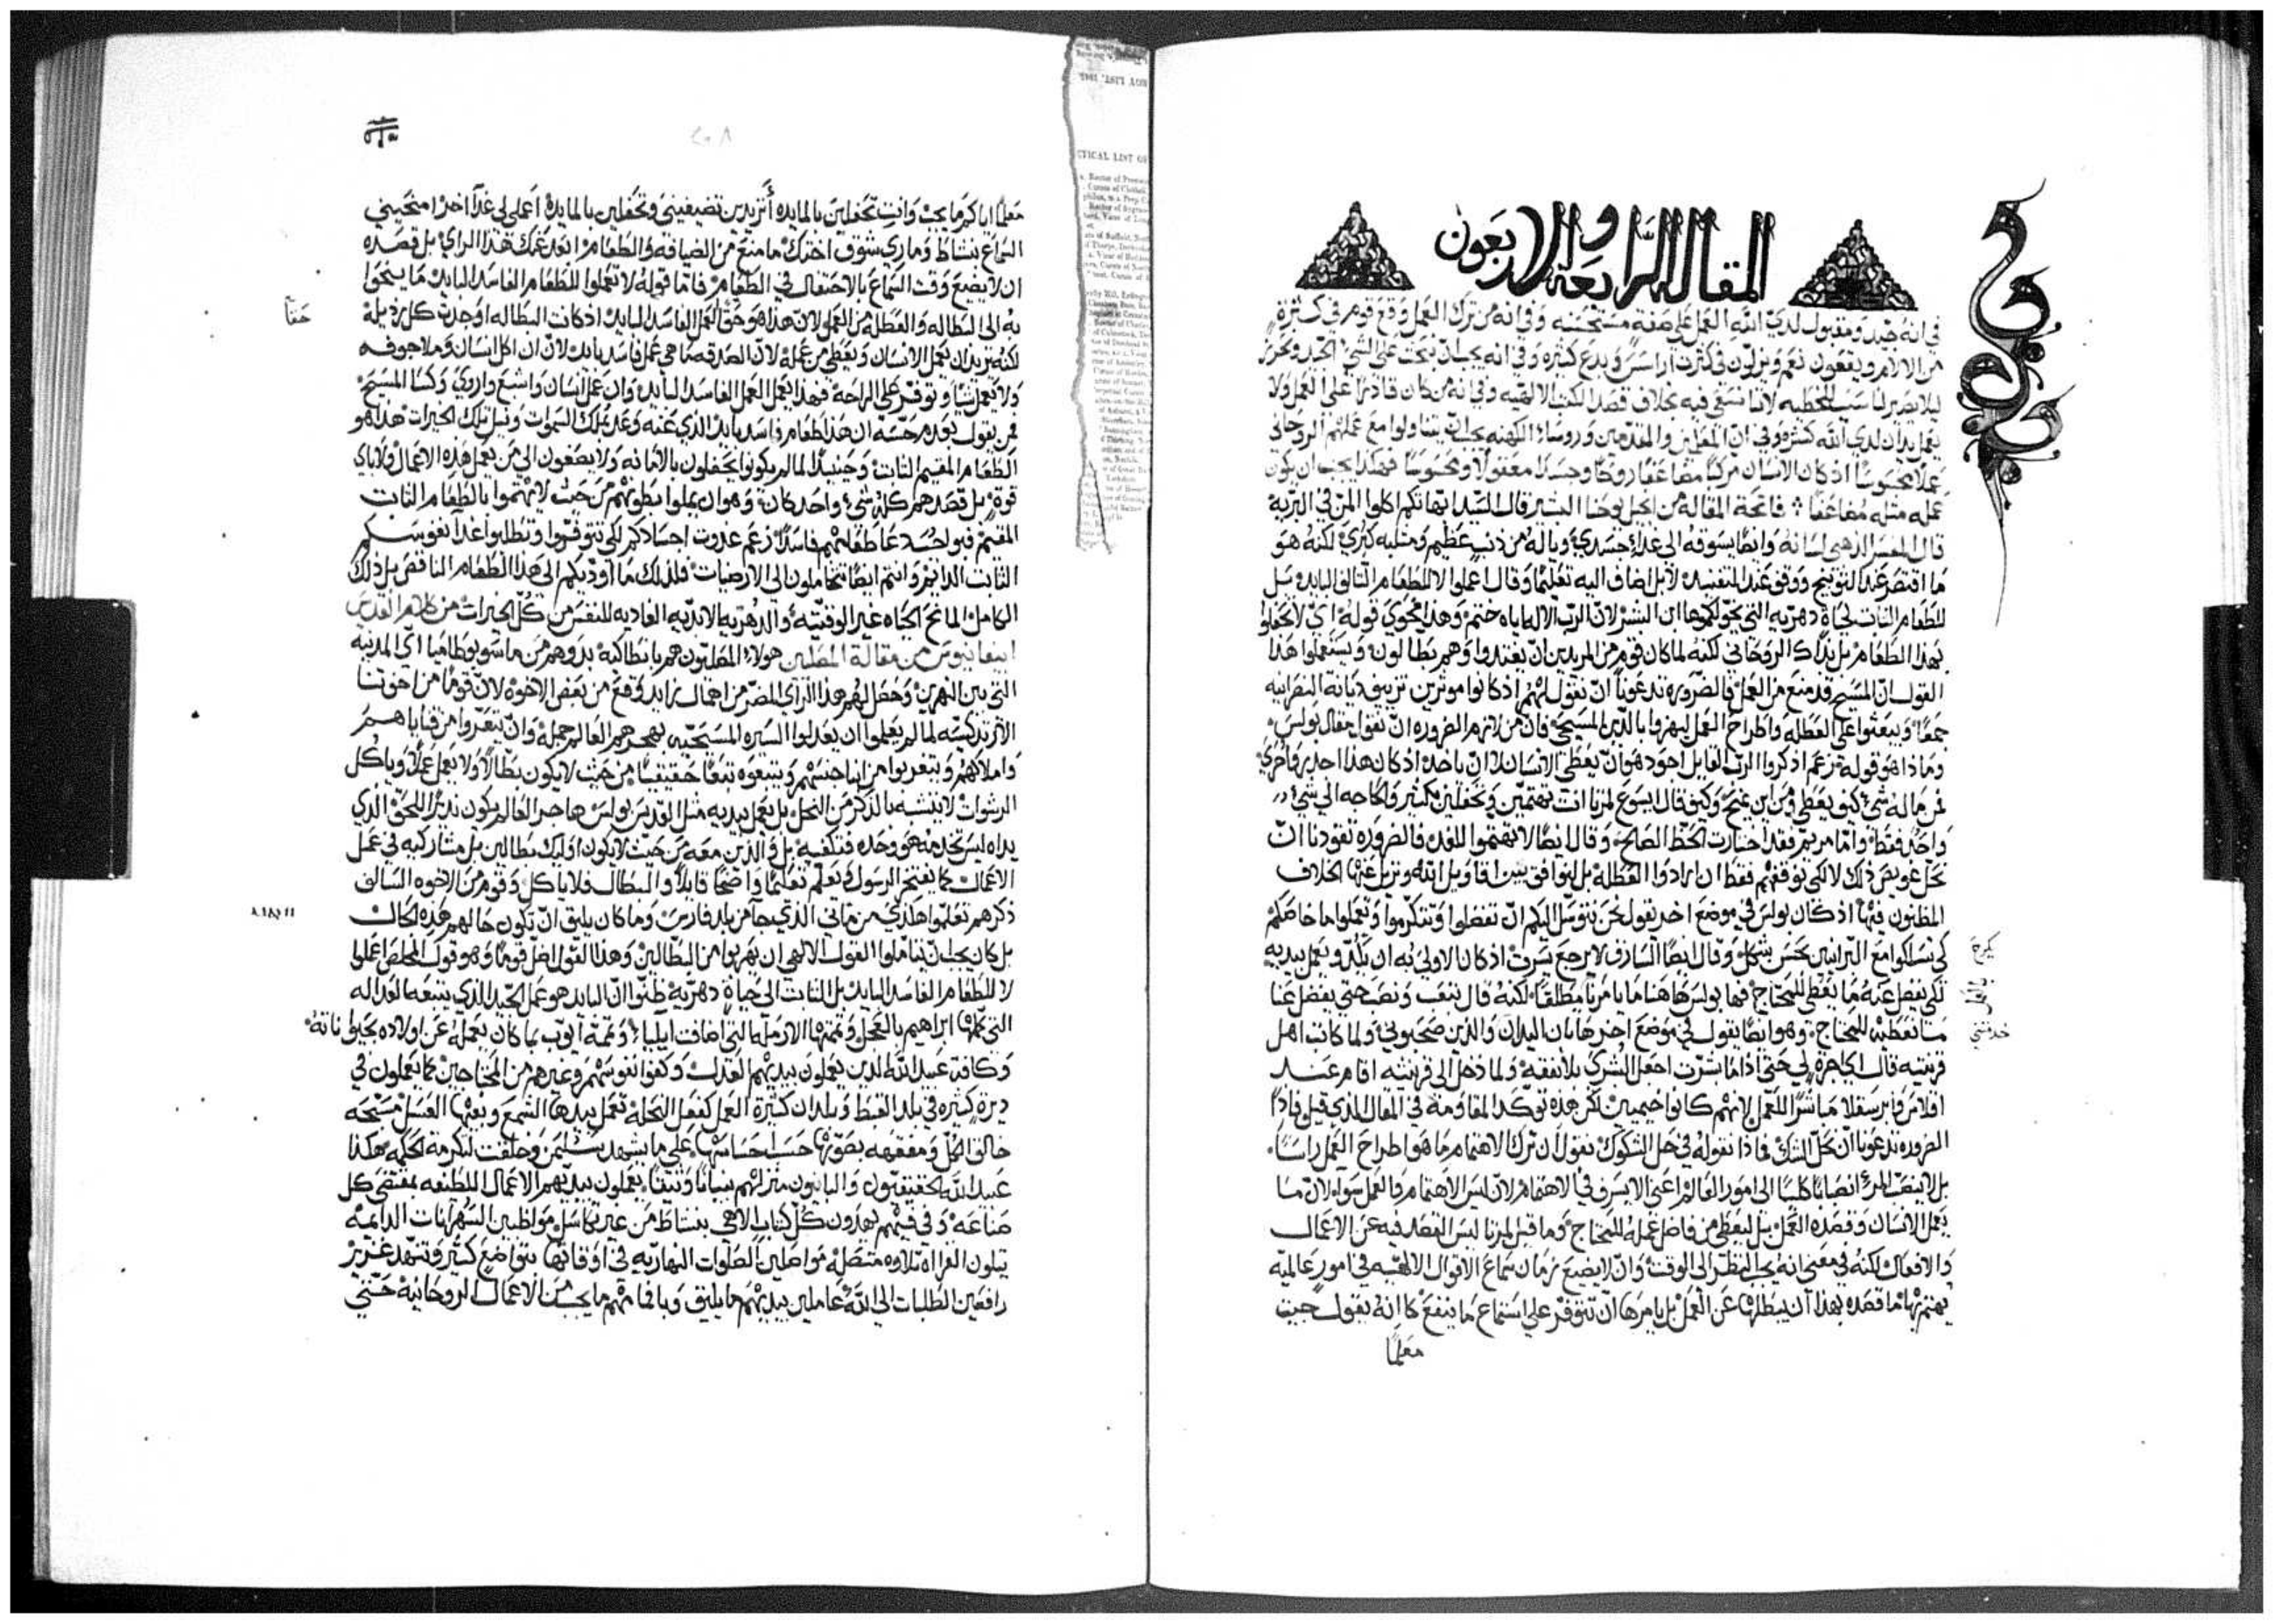 المقالة الرابعة والاربعون
في انه جيد ومقبول لدي الله العمل علي صفة مستحسنه وفي انه من ترك العمل وقع قوم في كثرة
من الالام ويقعون نعم ويزلون في كثرت اراسس وبدع كثيره وفي انه يجب ان نبحث علي الشي الجيد ونحرر
ليلا نصير لنا سبب للخطيه لاننا نسقى فيه بخلاف قصد الكتب الالهيه وفي انه من كان قادرا علي العمل ولا
يعمل يدان لدي الله كثيره وفي ان المعلمين والمقدمين وروساء الكهنه يجب ان يتناولوا مع عملهم الروحاني
عملا محسوسا اذ كان الانسان مركبا مضاعفا روحا وجسدا معقولا ومحسوسا فهكذا يجب ان يكون
عمله مثله مضاعفا فاتحة المقاله من انجيل يوحنا البشير قال السيد ابهاتكم اكلوا المن في البرية
قال المفسر الذهبي لسانه وايضا يسوقه الي غذاء جسدي وياله من ذنب عظيم ومثلبه كبري لكنه هو
ما اقتصر عند التوبيخ ووقف عند التفنيد لا بل اضاف اليه تعليما وقال اعملوا لا للطعام التالف البايد بل
للطعام الثابت لحياة دهريه التي يخولكموها ابن البشر لان الرب الاله اياه ختم وهذا فحوي قوله اي لا تحفلوا
بهذا الطعام بل بذاك الروحاني لكنه لما كان قوم من المريدين ان يغتذوا وهم بطالون ويستعملوا هذا
القول ان المسيح قد منع من العمل فالضروره تدعونا ان نقول لهم اذ كانوا موثرين تزييف ديانة النصرانيه
جمعا ويبعثوا علي العطله واطراح العمل ليهزوا بالدين المسيحي فان من لازم الضروره ان نفوا مقال بولس
وماذا هو قوله زعم اذكروا الرب القايل اجود هو ان يعطي الانسان من ان ياخذ اذ كان هذا احدي واحري
فمن ماله شي كيف يعطي ومن اين يمنح وكيف قال يسوع لمرتا انت تهتمين وتحفلين بكثير والحاجه الي شي
واحد فقط واما مريم فقد اختارت الحظ الصالح وقال ايضا لا تهتموا للغد فالضروره تقودنا ان
نحل عويص ذلك لا لكي نوقفهم فقط ان ارادوا العطلة بل لنوافق بين اقاويل الله ونزيل عنها الخلاف
المظنون فيها اذ كان بولس في موضع اخر يقول نحن نتوسل اليكم ان تفضلوا وتتكرموا وتعملوا ما خاصكم
كي تسلكوا مع البرانيين بحسن شكل وقال ايضا السارق لا يرجع يسرق اذ كان الاولي به ان يكد ويعمل بيديه
لكي يفضل عنه ما يعطي للمحتاج فها بولس هاهنا ما يامرنا مطلقا لكنه قال نتعب وننصب حتي يفضل عنا
ما نعطيه للمحتاج وهو ايضا يقول في موضع اخر هاتان اليدان والذين صحبوني ولما كاتب اهل
قرنتيه قال اي اجرة لي حتي اذا ما بشرت اجعل البشري بلا نفقه ولما دخل الي قرنتيه اقام عند
اقلاس وابرسقلا مباشرا للعمل لانهم كانوا خيميين لكن هذه توكد المقاومة في المقال الذي قيل فاذا
الضروره تدعونا ان نحل الشك فاذا نقوله في حل الشكوك نقول ان ترك الاهتمام ما هو اطراح العمل راسا
بل لا ينصب المرء انصبابا كليا الي امور العالم اعني الا يسرف في الاهتمام لان ليس الاهتمام والعمل سواء لان ما
يعمل الانسان وقصده العمل بل ليعطي من فاضل عمله للمحتاج وما قيل لمرتا ليس القصد فيه عن الاعمال
والافعال لكنه في معنى انه يجب النظر الي الوقت وان لا يضيع زمان سماع الاقوال الالهيه في امور عالميه
يهتم بها ما قصده بهذا ان يبطلها عن العمل بل يامرها ان تتوفر علي استماع ما ينفع كانه يقول جيت
معلما
يخرج
خدمتني
٢٠٨
معلما اياكم ما يجب وانت تحفلين بالمايده أتريدين تضيفيني وتحفلين بالمايدة اعملي لي غدا اخر امنحيني
السماع بنشاط وماري شوق اختك ما منع من الضيافه والطعام ابعد عنك هذا الراي بل قصده
ان لا يضيع وقت السماع بالاحتفال في الطعام فاما قوله لا تعملوا للطعام الفاسد البايد ما ينحوا
به الي البطاله والعطله من العمل لان هذا هو حق العمل الفاسد البايد اذ كانت البطاله اوجدت كل رذيلة
حقا
لكنه يريد ان يعمل الانسان ويعطي من عمله لان الصدقه ما هي عمل فاسد بايد لان ان اكل انسان وملا جوفه
ولا يعمل شيا وتوفر علي الراحة فهذا يعمل العمل الفاسد البايد وان عمل انسان واشبع واروي وكسا المسيح
فمن يقول بعدم حسه ان هذا طعام فاسد بايد الذي عنه وعد بملك السموات ونيل تلك الخيرات هذا هو
الطعام المقيم الثابت وحينيذ لما لم يكونوا يحفلون بالامانه ولا يصغون الي من يعمل هذه الاعمال ولا باي
قوة بل قصدهم كله شي واحد كان وهو ان يملوا بطونهم من حيث لا يهتموا بالطعام الثابت
المقيم فبواجب دعا طعامهم فاسدا زعم غذوت اجسادكم لكي تتوفروا وتطلبوا غذا نفوسكم
الثابت الدايم وانتم ايضا تتحاملون الي الارضيات فلذلك ما اوديكم الي هذا الطعام الناقص بل ذلك
الكامل المانح الحياه غير الوقتيه والدهريه الابديه الغاذيه للنفس من كل الخيرات من كلام القديس
ابيفانيوس من مقالة المصلين هولاء المصليون هم بانطاكيه بدوهم من ماسوبوطاميا اي المدنيه
التي بين النهرين وحصل لهم هذا الراي المضر من اهمال زايد وقع من بعض الاخوه لان قوما من اخوتنا
الارتدكسيه لما لم يعلموا ان يعدلوا السيره المسيحيه بهجرهم العالم جملة وان يتعروا من قناياهم
واملاكهم ويتغربوا من ابنا جنسهم ويتبعوه تبعا حقيقيا من حيث لا يكون بطالا ولا يعمل عملا وياكل
الرشوات لا يتشبه بالذكر من النحل بل يعمل بيديه مثل القديس بولس هاجر العالم يكون نذيرا للحق الذي
يداه ليس تخدمه هو وحده فتكفيه بل والذين معه من حيث لا يكون اوليك بطالين بل مشاركيه في عمل
الاعمال كما يفتخر الرسول ويعلم تعليما واضحا قايلا والبطال فلا ياكل وقوم من الاخوه السالف
ذكرهم تعلموا هذي من ماني الذي جا من بلد فارس وما كان يليق ان تكون حالهم هذه الحال
بل كان يجب ان يتاملوا القول الالهي ان يهربوا من البطالين وهذا القول اضل قوما وهو قول المخلص اعملوا
لا للطعام الفاسد البايد بل الثابت الي حياة دهرية ظنوا ان البايد هو عمل الجيد الذي يتبعه بالعداله
التي كلها ابراهيم بالعجل وتممتها الارمله التي اضافت ايليا وتممه ايوب بما كان يعمله عن اولاده بحيواناته
وكافة عبيد الله الذين يعملون بيديهم العدل وكفوا نفوسهم وغيرهم من المحتاجين كما يعملون في
ديرة كثيره في بلد القبط وبلدان كثيرة العمل كفعل النحلة تعمل بيدها الشمع وبفمها العسل مسبحه
خالق الكل ومفقهه بصوتها حسب حساستها علي ما يشهد سليمن وخلقت لتكرمة الحكمه هكذا
عبيد الله الحقيقيون والبانيون منزلهم بنيانا وثيقا يعملون بيديهم الاعمال اللطيفه بمقتضي كل
صناعة وفي فيهم يهدون كل كتاب الاهي بنشاط من غير تكاسل مواظبين السهرانات الدايمه
يتلون القراه تلاوه متصله مواصلين الصلوات النهاريه في اوقاتها بتواضع كثير وتنهد غزير
رافعين الطلبات الي الله عاملين بيديهم ما يليق وبافمامهم ما يجب من الاعمال الروحانية حتي
CTICAL LIST OF